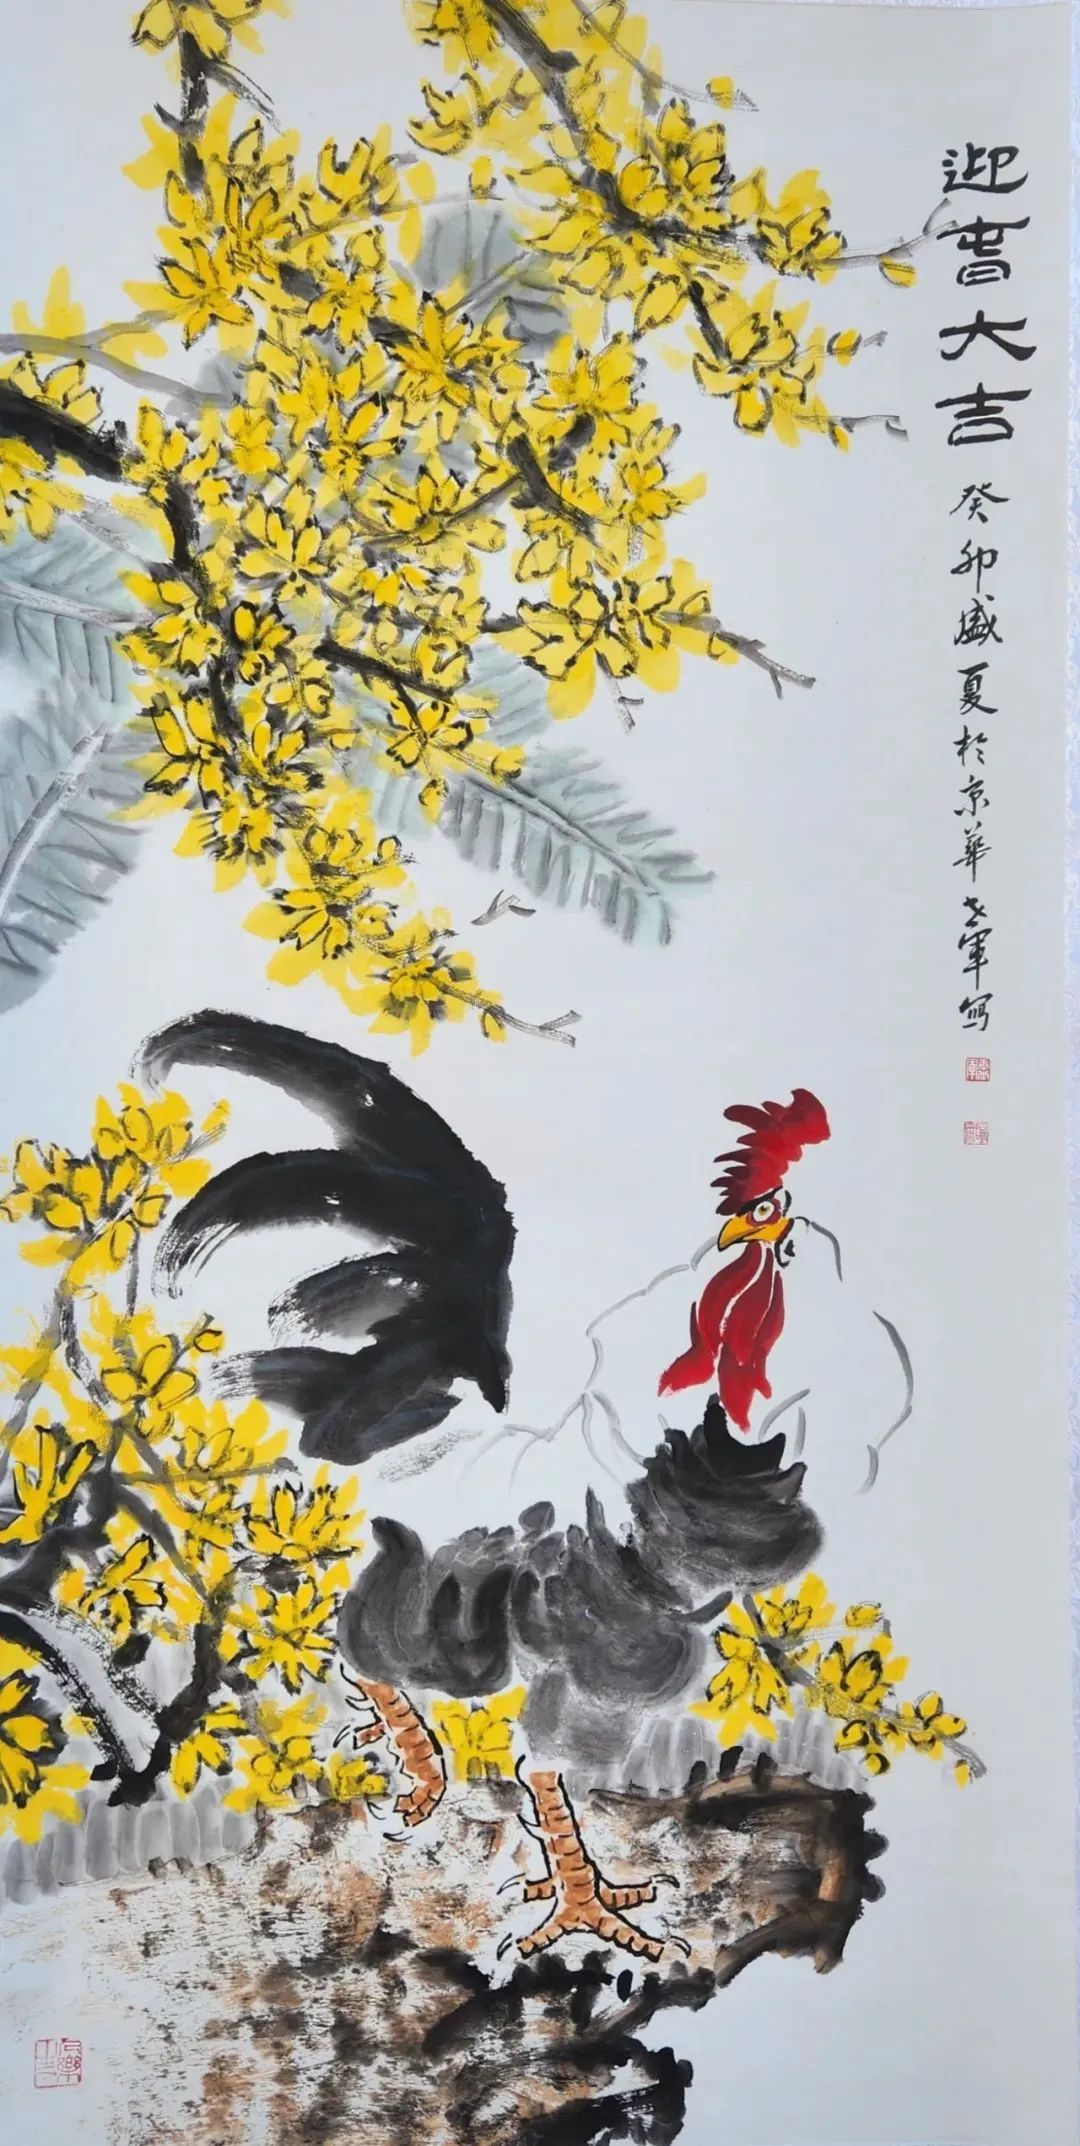 迎春大吉
癸卯盛夏於京華軍写